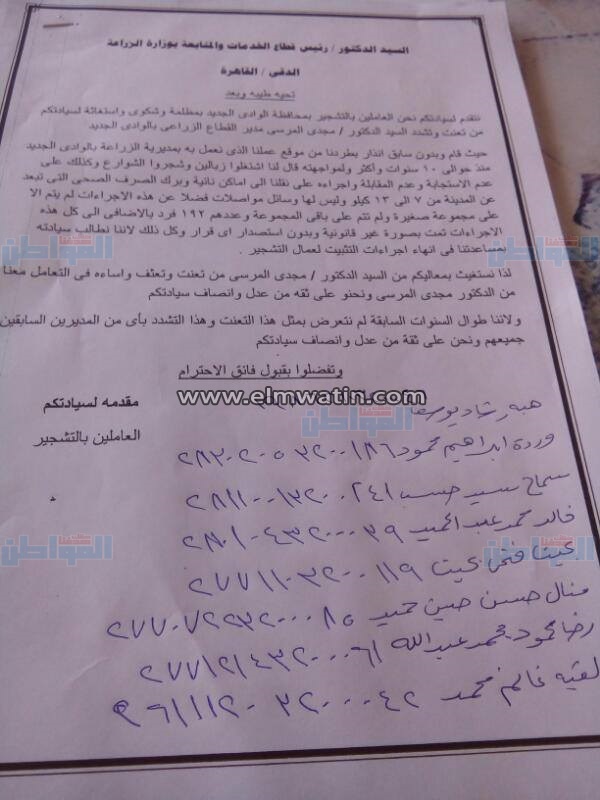 السيد الدكتور / رئيس قطاع الخدمات والمتابعة بوزارة الزراعة
الدقى / القاهرة
تحيه طيبه وبعد
نتقدم لسيادتكم نحن العاملين بالتشجير بمحافظة الوادى الجديد بمظلمة وشكوى واستغاثة لسيادتكم
من تعنت وتشدد السيد الدكتور / مجدى المرسى مدير القطاع الزراعى بالوادى الجديد
حيث قام وبدون سابق انذار بطردنا من موقع عملنا الذى نعمل به بمديرية الزراعة بالوادى الجديد
منذ حوالى ١٠ سنوات وأكثر ولمواجهته قال لنا اشتغلوا زبالين وشجروا الشوارع وكذلك على
عدم الاستجابة وعدم المقابلة واجراءه على نقلنا الى اماكن نائية وبرك الصرف الصحى التى تبعد
عن المدينة من ٧ الى ١٣ كيلو وليس لها وسائل مواصلات فضلا عن هذه الاجراءات لم يتم الا
على مجموعة صغيرة ولم تتم على باقى المجموعة وعددهم ١٩٢ فرد بالاضافى الى كل هذه
الاجراءات تمت بصورة غير قانونية وبدون استصدار اى قرار وكل ذلك لاننا نطالب سيادته
بمساعدتنا فى انهاء اجراءات التثبيت لعمال التشجير .
لذا نستغيث بمعاليكم من السيد الدكتور / مجدى المرسى من تعنت وتعنف واساءه فى التعامل معنا
من الدكتور مجدى المرسى ونحنو على ثقه من عدل وانصاف سيادتكم
ولاننا طوال السنوات السابقة لم نتعرض بمثل هذا التعنت وهذا التشدد بأى من المديرين السابقين
جميعهم ونحن على ثقة من عدل وانصاف سيادتكم
وتفضلوا بقبول فائق الاحترام
مقدمه لسيادتكم
العاملين بالتشجير
www.elmwatin.com
هبه رشاد يوسف
وردة ابراهيم محمود ٢٨٣٠٢٠٥٣٢٠٠١٨٦
سماح سيد حسب ٢٨١١٠٠١٣٢٠٠٢٤١
خالد محمد عبد الحميد ٢٨٠١٠٤٣٢٠٠٠٣٩
فتحى ٢٧٧١١٠٣٢٠٠١١٩
منال حسن حسين حميد ٢٧٧٠٧٢٢٣٢٠٠٠٨٥
رضا محمود محمد عبد الله ٢٧٧١٢١٤٣٢٠٠٠٦١
غانم محمد ٢٦١١١٢٠٣٢٠٠٠٤٢
المواطن